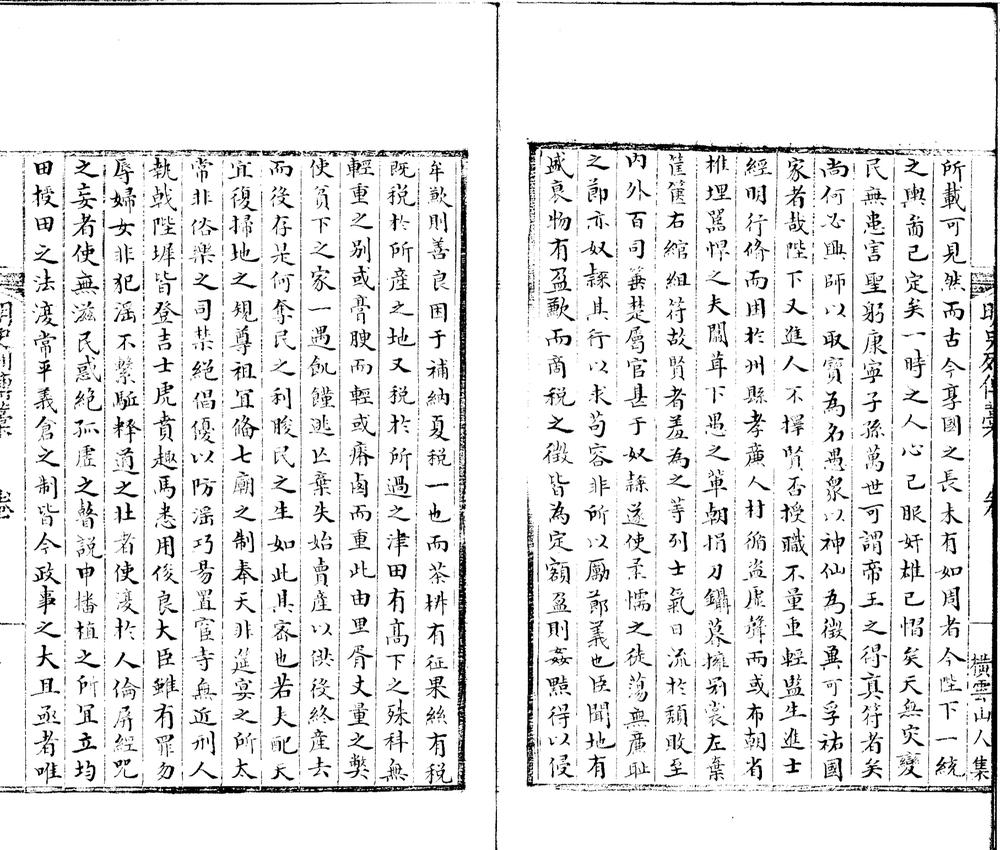 橫雲山人集
所載可見然而古今享國之長未有如周者今陛下一統
之輿啚已定矣一時之人心已服奸雄已慴矣天無灾變
民無患害聖躬康寧子孫萬世可謂帝王之得真符者矣
尚何必興師以取寶為名愚衆以神仙為徵兾可孚祐國
家者哉陛下又進人不擇賢否授職不量重輕監生進士
經明行脩而困於州縣孝廉人材循盜虛聲而或布朝省
椎埋嚚悍之夫闒茸下愚之軰朝捐刀鑷暮擁冠裳左棄
筐篋右綰組符故賢者羞為之等列士氣日流於頹敗至
内外百司箠楚屬官甚于奴隸遂使柔懦之徒蕩無廉耻
之節亦奴隸其行以求苟容非所以勵節義也臣聞地有
盛衰物有盈歉而商稅之徵皆為定額盈則姦黠得以侵
牟歉則善良困于補納夏税一也而茶椕有征果絲有税
既税於所産之地又税於所過之津田有髙下之殊科無
輕重之别或膏腴而輕或瘠鹵而重此由里胥丈量之獘
使貧下之家一遇飢饉逃亾棄失始賣産以供役終産去
而役存是何奪民之利朘民之生如此其宻也若夫配天
宜復掃地之規尊祖宜脩七廟之制奉天非筵宴之所太
常非俗樂之司禁絕倡優以防滛巧易置宦寺無近刑人
執戟陛墀皆登吉士虎賁趣馬悉用俊良大臣雖有罪勿
辱婦女非犯滛不繫駈釋道之壮者使復於人倫屏經咒
之妄者使無滋民惑絕孤虛之瞽説申播植之所宜立均
田授田之法復常平義倉之制皆今政事之大且亟者唯